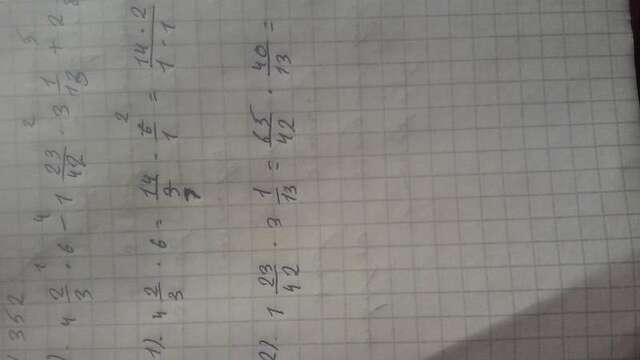 352
). 4 2/3 · 6 - 1 23/42 · 3 1/13 + 2
1 4 2 5
1). 4 2/3 · 6 = 14/3 · 6/1 = 14 · 2 / 1 · 1
2). 1 23/42 · 3 1/13 = 65/42 · 40/13 =